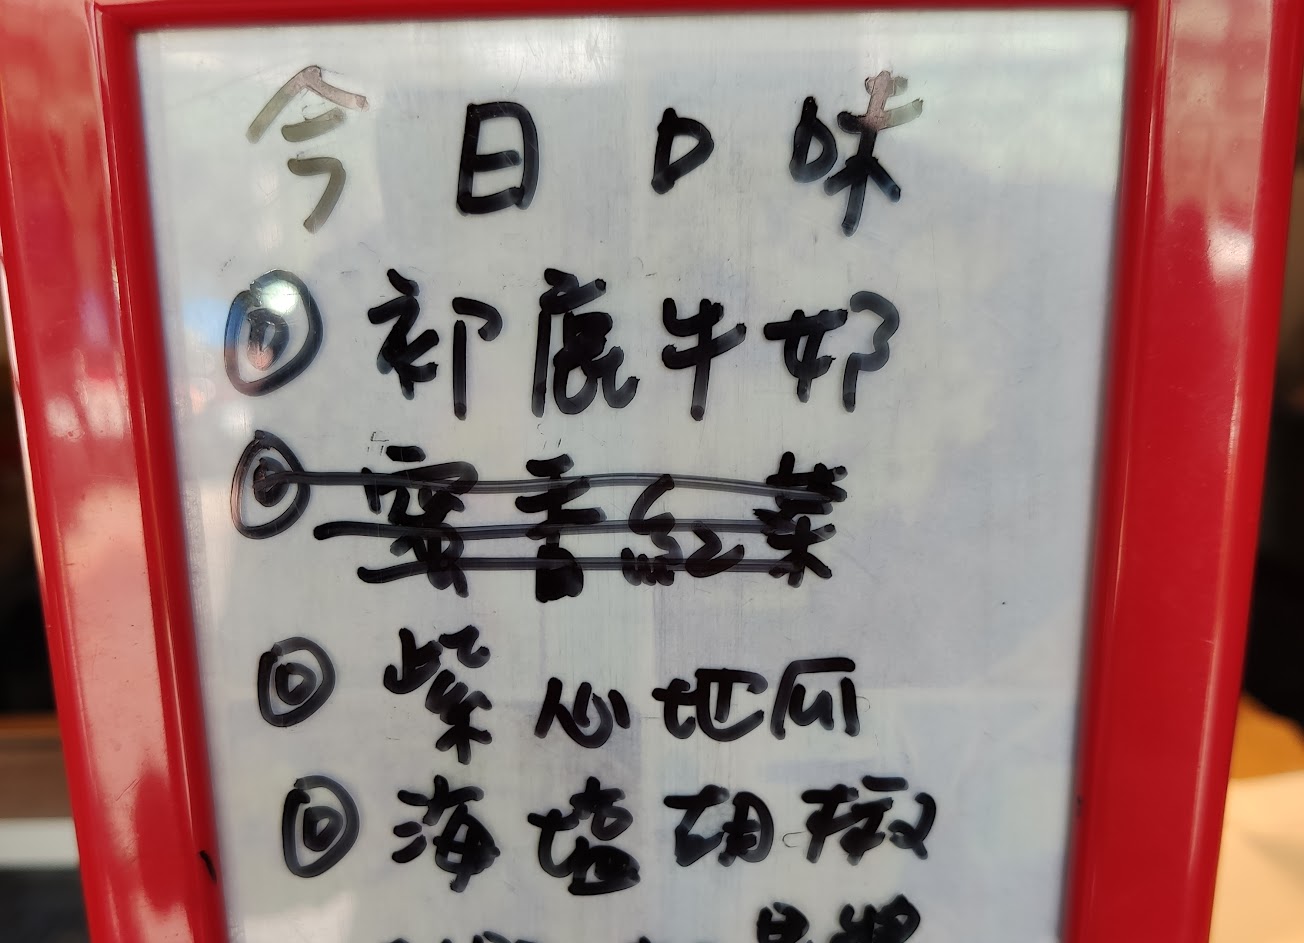 今日口味
◎ 初鹿牛奶
◎ 蜜香紅茶
◎ 紫心地瓜
◎ 海塩胡椒